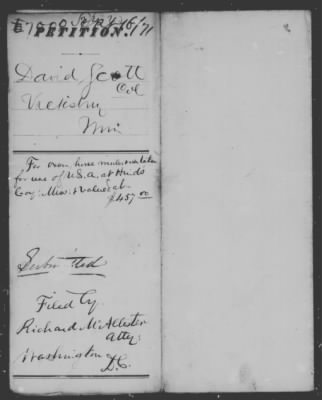 PETITION.
David Scott
Col
Vicksburg
Miss
For oxen, horse mules &c taken
for use of U.S.A. at Hinds
Coy: Miss: & valued at
$457.00
Submitted
Filed by
Richard McAllester
Atty:
Washington
D.C.